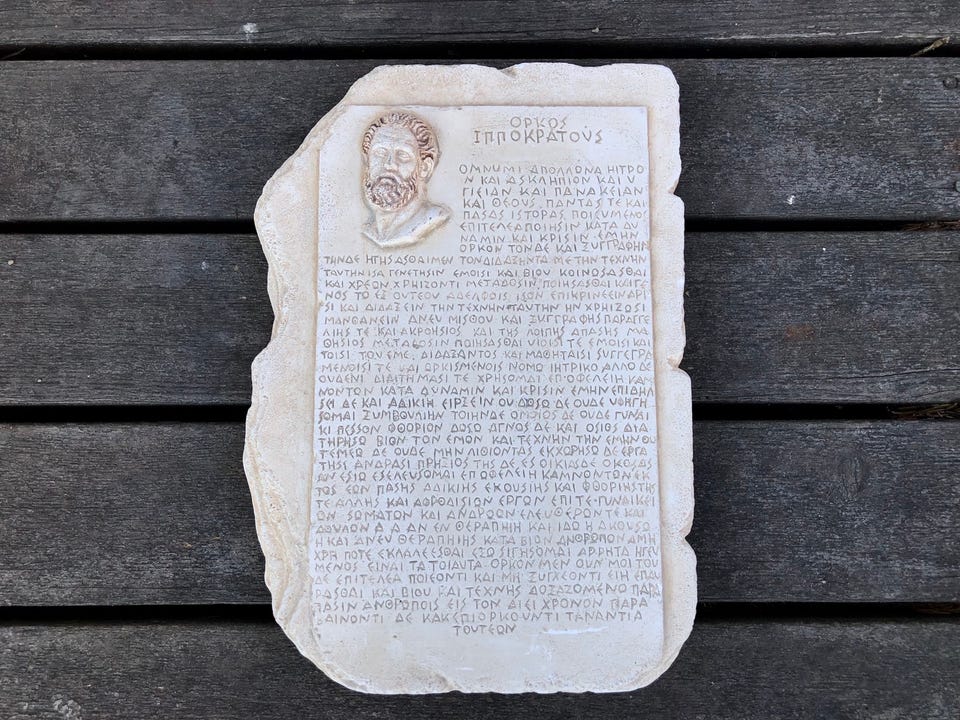 ΟΡΚΟΣ
ΙΠΠΟΚΡΑΤΟΥΣ
ΟΜΝΥΜΙ ΑΠΟΛΛΩΝΑ ΗΙΤΡΟ
Ν ΚΑΙ ΑΣΚΛΗΠΙΟΝ ΚΑΙ Υ
ΓΙΕΙΑΝ ΚΑΙ ΠΑΝΑΚΕΙΑΝ
ΚΑΙ ΘΕΟΥΣ, ΠΑΝΤΑΣ ΤΕ ΚΑΙ
ΠΑΣΑΣ ΙΣΤΟΡΑΣ, ΠΟΙΕΥΜΕΝΟΣ
ΕΠΙΤΕΛΕΑ ΠΟΙΗΣΙΝ ΚΑΤΑ ΔΥ
ΝΑΜΙΝ ΚΑΙ ΚΡΙΣΙΝ ΕΜΗΝ
ΟΡΚΟΝ ΤΟΝΔΕ ΚΑΙ ΞΥΓΓΡΑΦΗΝ
ΤΗΝΔΕ ΗΓΗΣΑΣΘΑΙ ΜΕΝ ΤΟΝ ΔΙΔΑΞΑΝΤΑ ΜΕ ΤΗΝ ΤΕΧΝΗΝ
ΤΑΥΤΗΝ ΙΣΑ ΓΕΝΕΤΗΣΙΝ ΕΜΟΙΣΙ ΚΑΙ ΒΙΟΥ ΚΟΙΝΩΣΑΣΘΑΙ
ΚΑΙ ΧΡΕΩΝ ΧΡΗΙΖΟΝΤΙ ΜΕΤΑΔΟΣΙΝ, ΠΟΙΗΣΑΣΘΑΙ ΚΑΙ ΓΕ
ΝΟΣ ΤΟ ΕΞ ΟΥΤΕΟΥ ΑΔΕΛΦΟΙΣ ΙΣΟΝ ΕΠΙΚΡΙΝΕΕΙΝ ΑΡΡΕ
ΣΙ ΚΑΙ ΔΙΔΑΞΕΙΝ ΤΗΝ ΤΕΧΝΗΝ ΤΑΥΤΗΝ ΗΝ ΧΡΗΙΖΩΣΙ
ΜΑΝΘΑΝΕΙΝ ΑΝΕΥ ΜΙΣΘΟΥ ΚΑΙ ΞΥΓΓΡΑΦΗΣ ΠΑΡΑΓΓΕ
ΛΙΗΣ ΤΕ ΚΑΙ ΑΚΡΟΗΣΙΟΣ ΚΑΙ ΤΗΣ ΛΟΙΠΗΣ ΑΠΑΣΗΣ ΜΑ
ΘΗΣΙΟΣ ΜΕΤΑΔΟΣΙΝ ΠΟΙΗΣΑΣΘΑΙ ΥΙΟΙΣΙ ΤΕ ΕΜΟΙΣΙ ΚΑΙ
ΤΟΙΣΙ ΤΟΥ ΕΜΕ ΔΙΔΑΞΑΝΤΟΣ ΚΑΙ ΜΑΘΗΤΑΙΣΙ ΣΥΓΓΕΓΡΑ
ΜΕΝΟΙΣΙ ΤΕ ΚΑΙ ΩΡΚΙΣΜΕΝΟΙΣ ΝΟΜΩ ΙΗΤΡΙΚΩ ΑΛΛΩ ΔΕ
ΟΥΔΕΝΙ ΔΙΑΙΤΗΜΑΣΙ ΤΕ ΧΡΗΣΟΜΑΙ ΕΠ ΩΦΕΛΕΙΗ ΚΑΜ
ΝΟΝΤΩΝ ΚΑΤΑ ΔΥΝΑΜΙΝ ΚΑΙ ΚΡΙΣΙΝ ΕΜΗΝ ΕΠΙ ΔΗΛΗ
ΣΕΙ ΔΕ ΚΑΙ ΑΔΙΚΙΗ ΕΙΡΞΕΙΝ ΟΥ ΔΩΣΩ ΔΕ ΟΥΔΕ ΥΦΗΓΗ
ΣΟΜΑΙ ΞΥΜΒΟΥΛΙΗΝ ΤΟΙΗΝΔΕ ΟΜΟΙΟΣ ΔΕ ΟΥΔΕ ΓΥΝΑΙ
ΚΙ ΠΕΣΣΟΝ ΦΘΟΡΙΟΝ ΔΩΣΩ ΑΓΝΟΣ ΔΕ ΚΑΙ ΟΣΙΟΣ ΔΙΑ
ΤΗΡΗΣΩ ΒΙΟΝ ΤΟΝ ΕΜΟΝ ΚΑΙ ΤΕΧΝΗΝ ΤΗΝ ΕΜΗΝ ΟΥ
ΤΕΜΕΩ ΔΕ ΟΥΔΕ ΜΗΝ ΛΙΘΙΩΝΤΑΣ ΕΚΧΩΡΗΣΩ ΔΕ ΕΡΓΑ
ΤΗΣΙ ΑΝΔΡΑΣΙ ΠΡΗΞΙΟΣ ΤΗΣΔΕ ΕΣ ΟΙΚΙΑΣ ΔΕ ΟΚΟΣΑΣ
ΑΝ ΕΣΙΩ ΕΣΕΛΕΥΣΟΜΑΙ ΕΠ ΩΦΕΛΕΙΗ ΚΑΜΝΟΝΤΩΝ ΕΚ
ΤΟΣ ΕΩΝ ΠΑΣΗΣ ΑΔΙΚΙΗΣ ΕΚΟΥΣΙΗΣ ΚΑΙ ΦΘΟΡΙΗΣ ΤΗΣ
ΤΕ ΑΛΛΗΣ ΚΑΙ ΑΦΡΟΔΙΣΙΩΝ ΕΡΓΩΝ ΕΠΙ ΤΕ ΓΥΝΑΙΚΕΙ
ΩΝ ΣΩΜΑΤΩΝ ΚΑΙ ΑΝΔΡΩΩΝ ΕΛΕΥΘΕΡΩΝ ΤΕ ΚΑΙ
ΔΟΥΛΩΝ Α Δ ΑΝ ΕΝ ΘΕΡΑΠΗΙΗ ΚΑΙ ΙΔΩ Η ΑΚΟΥΣΩ
Η ΚΑΙ ΑΝΕΥ ΘΕΡΑΠΗΙΗΣ ΚΑΤΑ ΒΙΟΝ ΑΝΘΡΩΠΩΝ Α ΜΗ
ΧΡΗ ΠΟΤΕ ΕΚΛΑΛΕΕΣΘΑΙ ΕΞΩ ΣΙΓΗΣΟΜΑΙ ΑΡΡΗΤΑ ΗΓΕΥ
ΜΕΝΟΣ ΕΙΝΑΙ ΤΑ ΤΟΙΑΥΤΑ ΟΡΚΟΝ ΜΕΝ ΟΥΝ ΜΟΙ ΤΟΥ
ΔΕ ΕΠΙΤΕΛΕΑ ΠΟΙΕΟΝΤΙ ΚΑΙ ΜΗ ΞΥΓΧΕΟΝΤΙ ΕΙΗ ΕΠΑΥ
ΡΑΣΘΑΙ ΚΑΙ ΒΙΟΥ ΚΑΙ ΤΕΧΝΗΣ ΔΟΞΑΖΟΜΕΝΩ ΠΑΡΑ
ΠΑΣΙΝ ΑΝΘΡΩΠΟΙΣ ΕΙΣ ΤΟΝ ΑΙΕΙ ΧΡΟΝΟΝ ΠΑΡΑ
ΒΑΙΝΟΝΤΙ ΔΕ ΚΑΚ ΕΠΙΟΡΚΟΥΝΤΙ ΤΑΝΑΝΤΙΑ
ΤΟΥΤΕΩΝ